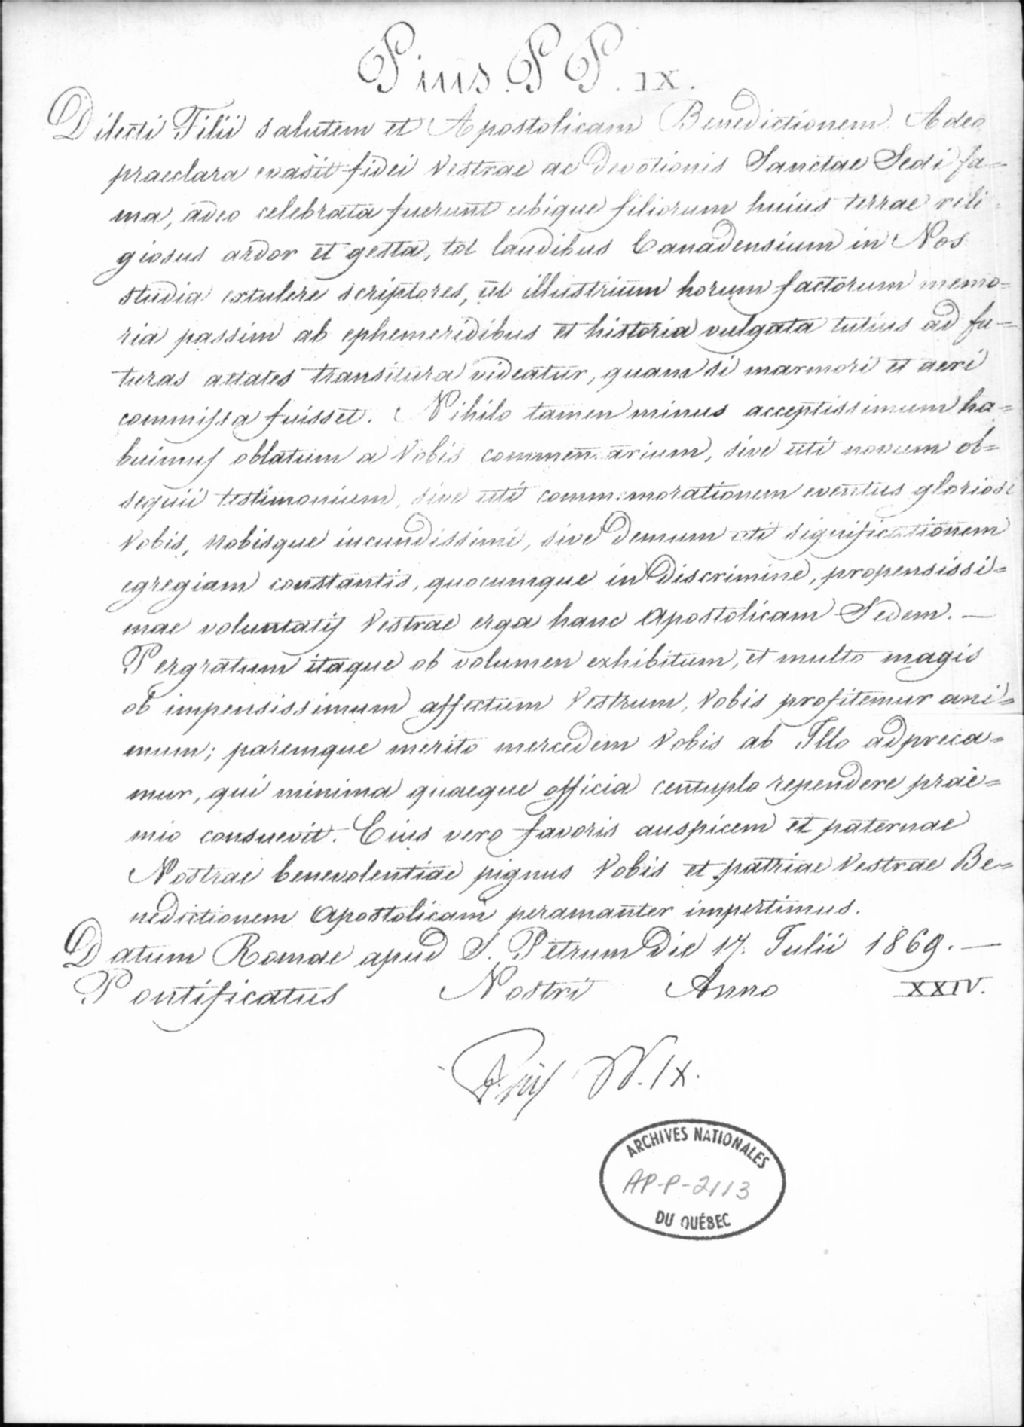 Pius. P P. IX.
Dilecti Filii salutem et Apostolicam Benedictionem. Adeo
praeclara evasit fidei Vestrae ac devotionis Sanctae Sedi fa-
ma, adeo celebrata fuerunt ubique filiorum huius terrae reli-
giosus ardor et gesta, tot laudibus Canadensium in Nos
studia extulere scriptores, ut illustrium horum factorum memo-
ria passim ab ephemeridibus et historia vulgata tutius ad fu-
turas aetates transitura videatur, quam si marmori et aeri
commissa fuisset. Nihilo tamen minus acceptissimum ha-
buimus oblatum a Vobis commentarium, sive uti novum ob-
sequii testimonium, sive uti commemorationem eventus gloriosi
Vobis, Nobisque iucundissimi, sive demum uti significationem
egregiam constantis, quocumque in discrimine, propensissi-
mae voluntatis Vestrae erga hanc Apostolicam Sedem. —
Pergratum itaque ob volumen exhibitum, et multo magis
ob impensissimum affectum Vestrum, Vobis profitemur ani-
mum; paremque merito mercedem Vobis ab Illo adpreca-
mur, qui minima quaeque officia centuplo rependere prae-
mio consuevit. Eius vero favoris auspicem et paternae
Nostrae benevolentiae pignus Vobis et patriae Vestrae Be-
nedictionem Apostolicam peramanter impertimus.
Datum Romae apud S. Petrum Die 17. Iulii 1869. —
Pontificatus Nostri Anno XXIV.
Pius PP. IX.
ARCHIVES NATIONALES
AP-P-2113
DU QUÉBEC